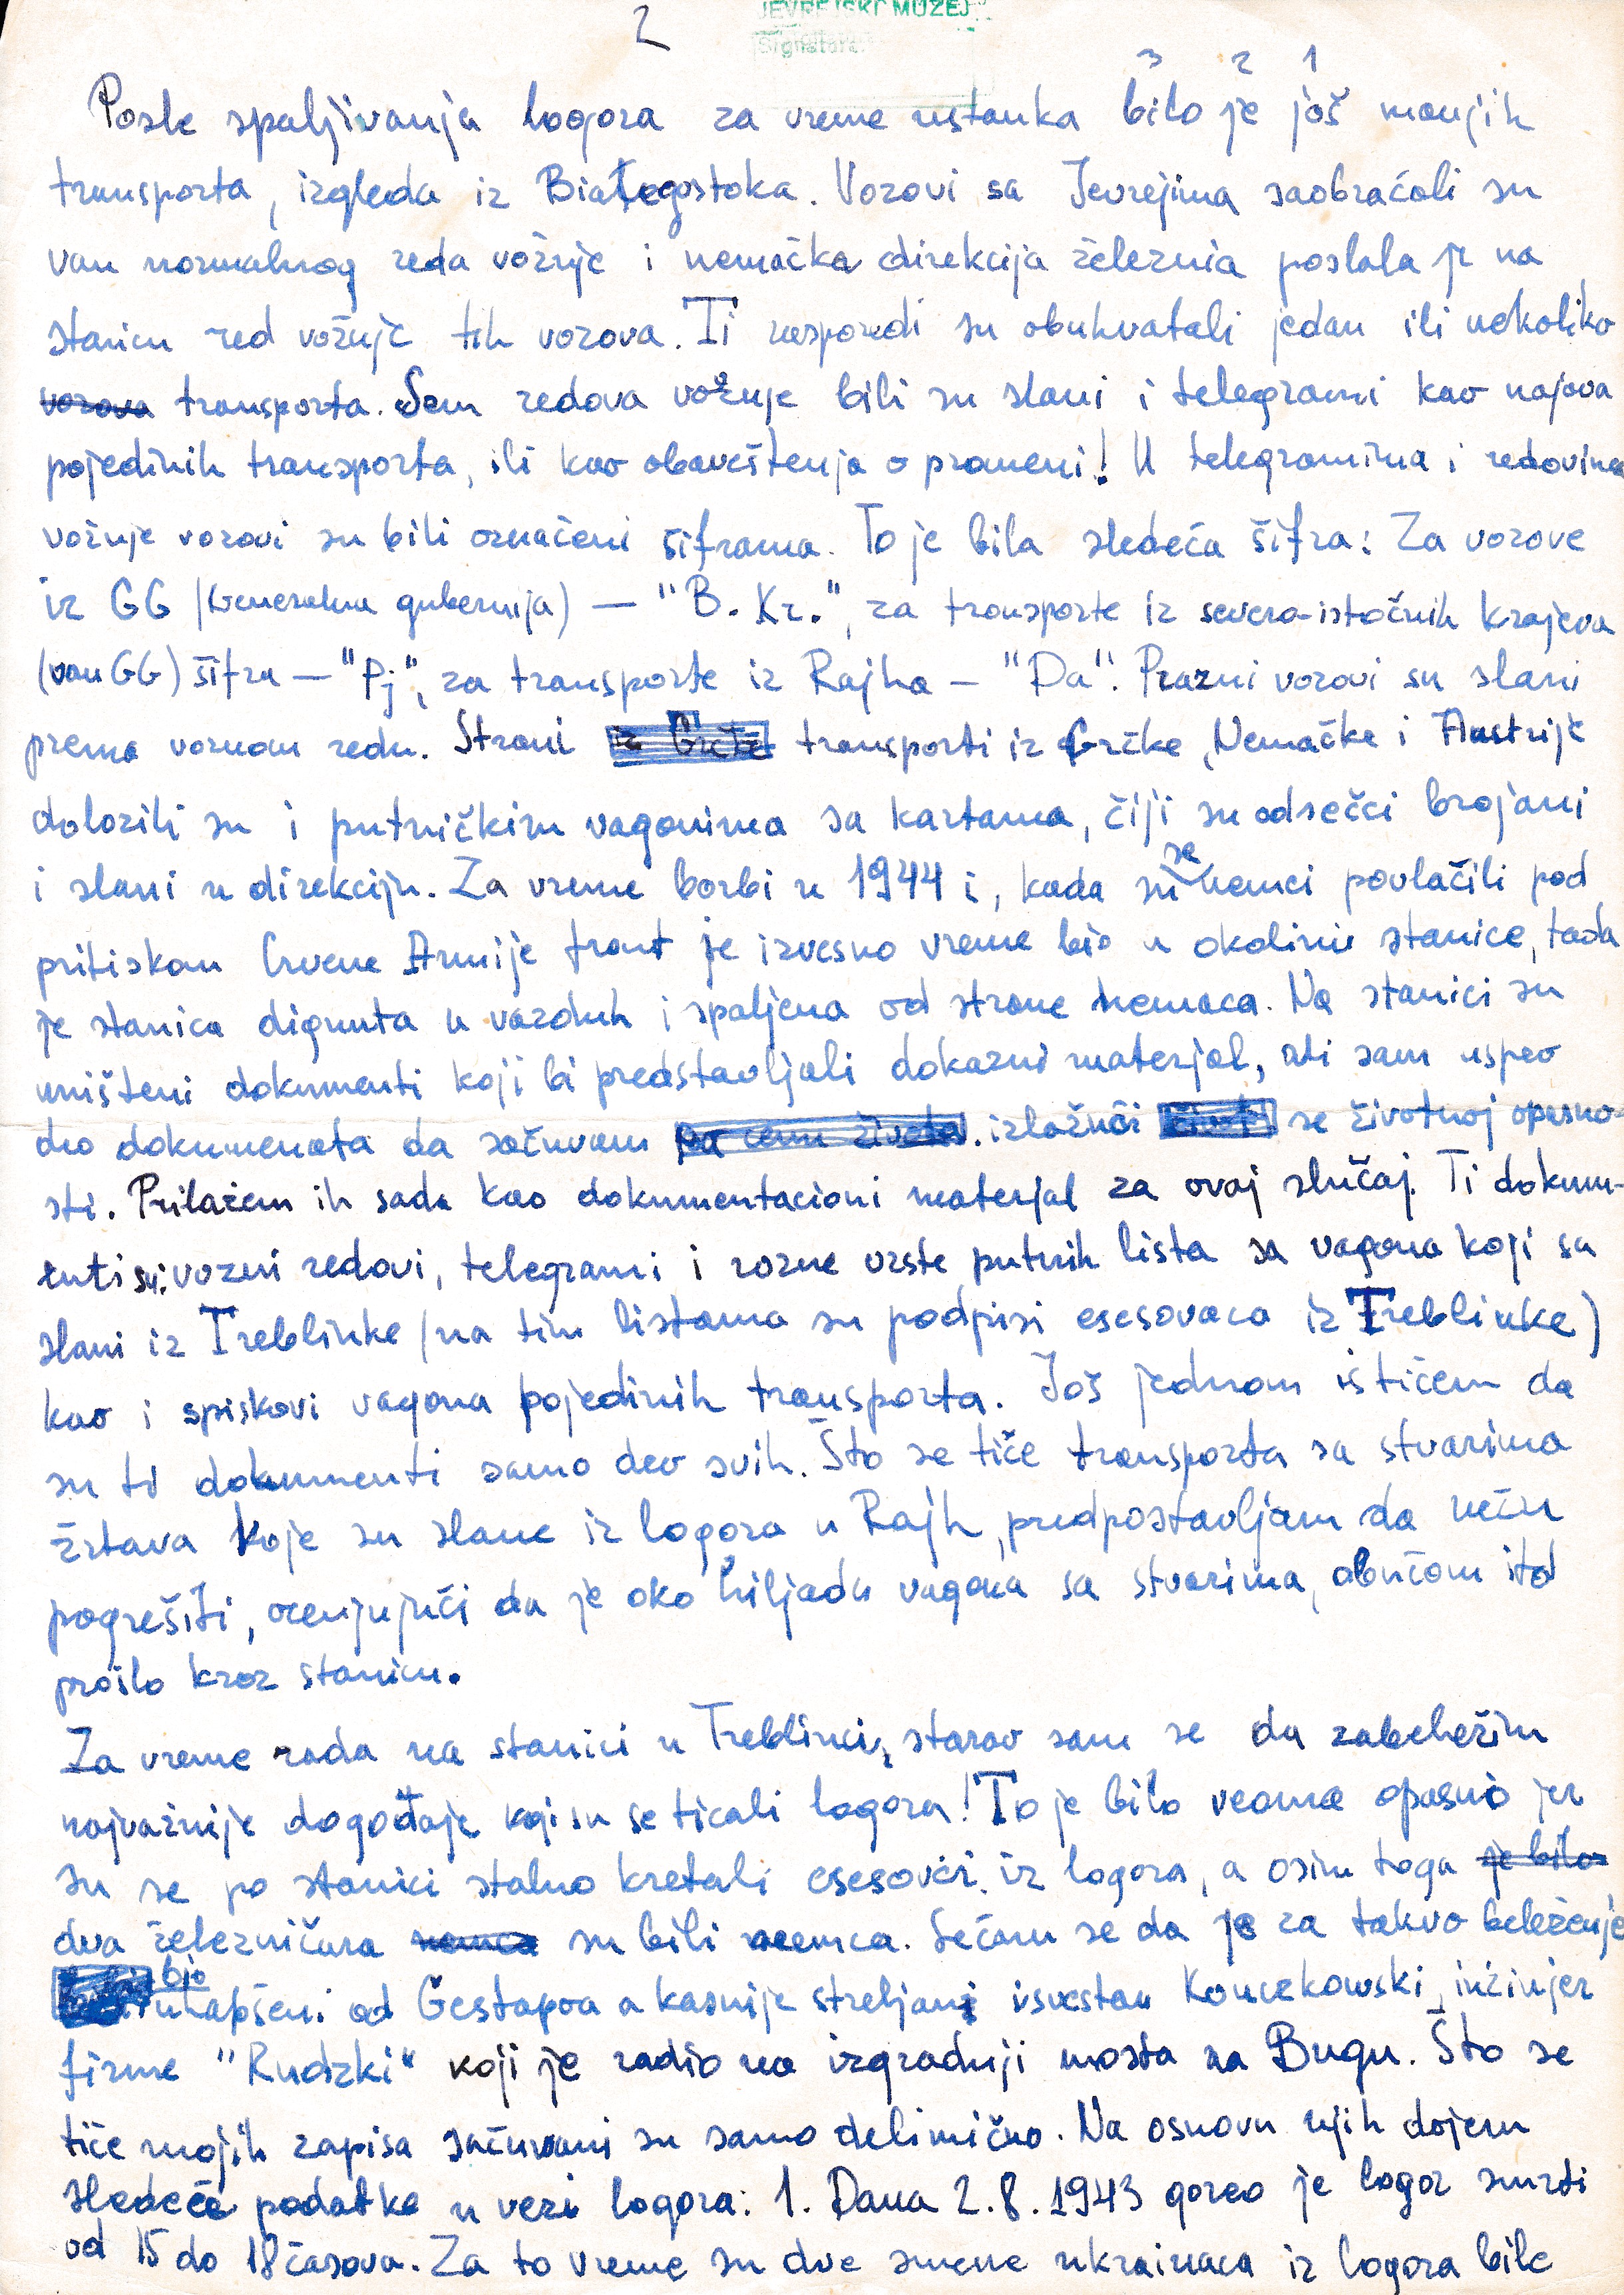 2
JEVREJSKI MUZEJ
Signatura:
3 2 1
Posle spaljivanja logora za vreme ustanka bilo je još manjih
transporta, izgleda iz Białegostoka. Vozovi sa Jevrejima saobraćali su
van normalnog reda vožnje i nemačka direkcija železnia poslala je na
stanicu red vožnje tih vozova. Ti rasporedi su obuhvatali jedan ili nekoliko
vozova transporta. Sem redova vožnje bili su slani i telegrami kao najava
pojedinih transporta, ili kao obaveštenja o promeni! U telegramima i redovima
vožnje vozovi su bili označeni šiframa. To je bila sledeća šifra: Za vozove
iz GG (Generalna gubernija) — "B. Kr.", za transporte iz severo-istočnih krajeva
(van GG) šifra — "Pj", za transporte iz Rajha — "Da". Prazni vozovi su slani
prema voznom redu. Strani iz Grčke transporti iz Grčke, Nemačke i Austrije
dolazili su i putničkim vagonima sa kartama, čiji su odsečci brojani
i slani u direkciju. Za vreme borbi u 1944 i, kada su se nemci povlačili pod
pritiskom Crvene Armije front je izvesno vreme bio u okolini stanice, tada
je stanica dignuta u vazduh i spaljena od strane nemaca. Na stanici su
uništeni dokumenti koji bi predstavljali dokazni materjal, ali sam uspeo
deo dokumenata da sačuvam po cenu života. izlažući život se životnoj opasno-
sti. Prilažem ih sada kao dokumentacioni materjal za ovaj slučaj. Ti dokum-
enti su: vozni redovi, telegrami i razne vrste putnih lista sa vagona koji su
slani iz Treblinke (na tim listama su podpisi esesovaca iz Treblinke)
kao i spiskovi vagona pojedinih transporta. Još jednom ističem da
su ti dokumenti samo deo svih. Što se tiče transporta sa stvarima
žrtava koje su slane iz logora u Rajh, predpostavljam da neću
pogrešiti, ocenjujući da je oko hiljadu vagona sa stvarima, obućom itd
prošlo kroz stanicu.
Za vreme rada na stanici u Treblinki, starao sam se da zabeležim
najvažnije događaje koji su se ticali logora! To je bilo veoma opasno jer
su se po stanici stalno kretali esesovci iz logora, a osim toga je bilo
dva železničara nemca su bili nemca. Sećam se da je za takvo beleženje
bio uhapšeni od Gestapoa a kasnije streljani izvestan Koncekowski, inžinjer
firme "Rudzki" koji je radio na izgradnji mosta na Bugu. Što se
tiče mojih zapisa sačuvani su samo delimično. Na osnovu njih dajem
sledeće podatke u vezi logora: 1. Dana 2.8.1943 goreo je logor smrti
od 15 do 18 časova. Za to vreme su dve smene ukrainaca iz logora bile